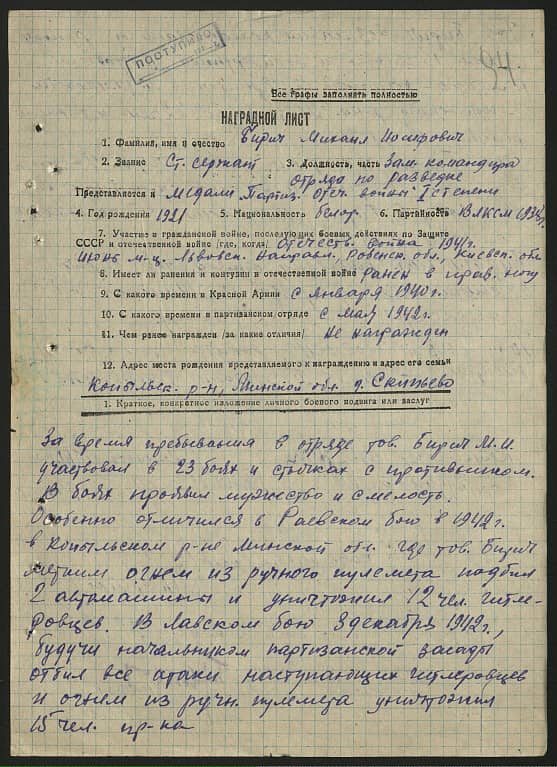 ПОСТУПИЛО
94.
Все графы заполнять полностью
НАГРАДНОЙ ЛИСТ
1. Фамилия, имя и очество Бирич Михаил Иосифович
2. Звание Ст. сержант 3. Должность, часть Зам. командира
отряда по разведке
Представляется к Медали Партиз. отеч. войны I степени
4. Год рождения 1921 5. Национальность белор. 6. Партийность ВЛКСМ
7. Участие в гражданской войне, последующих боевых действиях по Защите
СССР и отечественной войне (где, когда) Отечеств. война 1941г.
июнь м-ц. Львовск. направл., Ровенск. обл., Киевск. обл
8. Имеет ли ранения и контузии в отечественной войне ранен в прав. ногу
9. С какого времени в Красной Армии с января 1940г.
10. С какого времени в партизанском отряде с мая 1942г.
11. Чем ранее награжден /за какие отличия/ Не награжден
12. Адрес места рождения представляемого к награждению и адрес его семьи
Копыльск. р-н, Минской обл. д.
1. Краткое, конкретное изложение личного боевого подвига или заслуг
За время пребывания в отряде тов. Бирич М.И.
участвовал в 23 боях и стычках с противником.
В боях проявил мужество и смелость.
Особенно отличился в Раевском бою в 1942г.
в Копыльском р-не Минской обл. где тов. Бирич
метким огнем из ручного пулемета подбил
2 автомашины и уничтожил 12 чел. гитле-
ровцев. В Лавском бою 8 декабря 1942г.,
будучи начальником партизанской засады
отбил все атаки наступающих гитлеровцев
и огнем из ручн. пулемета уничтожил
15 чел. пр-ка